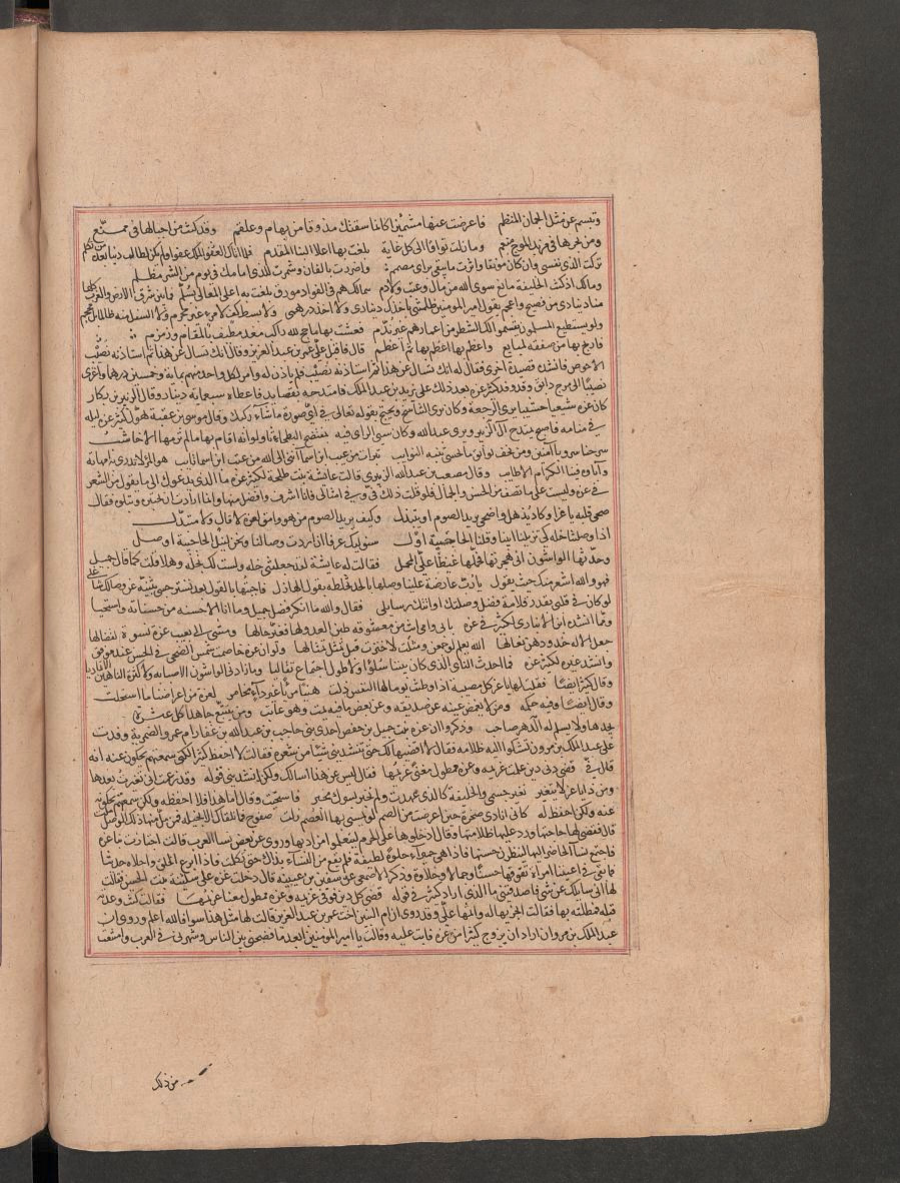 وتبسم عن مثل الجمان المنظم فاعرضت عنها مشمئزا كانما سقتك مدوفا من سمام وعلقم وقد كنت من اجبالها في ممنع
ومن بحرها في مزبد الموج مفعم وما زلت تواقا الى كل غاية بلغت بها اعلا البنا المقدم فلما اتاك الملك عفوا ولم يكن لطالب دنيا بعده من تكلم
تركت الذي يفنى وان كان مونقا واثرت ما يبقى براي مصمم واضررت بالفاني وشمرت للذي امامك في يوم من الشر مظلم
ومالك اذ كنت الخليفة مانع سوى الله من مال رعيت ولا دم سمالك هم في الفواد مورق بلغت به اعلى المعالي بسلم فما بين شرق الارض والغرب كلها
مناد ينادي من فصيح واعجم يقول امير المومنين ظلمتني باخذك ديناري ولا اخذ درهمي ولا بسط كف لامرء غير مجرم ولا السفك منه ظالما ملء محجم
ولو يستطيع المسلمون لقسموا لك الشطر من اعمارهم غير ندم فعشت بها ما حج لله راكب مغذ مطيف بالمقام وزمزم
فاربح بها من صفقة لمبايع واعظم بها اعظم بها ثم اعظم قال فاقبل علي عمر بن عبد العزيز وقال انك تسال عن هذا ثم استاذنه نصيب
الاحوص فانشده قصيدة اخرى فقال له انك تسال عن هذا ثم استاذنه نصيب فلم ياذن له وامر لكل واحد منهم بماية وخمسين درهما واغزى
نصيبا الى مرج دابق وقد وفد كثير عزة بعد ذلك على يزيد بن عبد الملك فامتدحه بقصايد فاعطاه سبعماية دينار وقال الزبير بن بكار
كان عزة شيعيا خشبيا يرى الرجعة وكان يرى التناسخ ويحتج بقوله تعالى في اي صورة ما شاء ركبك وقال موسى بن عقبة هول كثير عزة ليله
في منامه فاصبح يمتدح ال الزبير ويرثي عبد الله وكان سيي الراي فيه
وقال مصعب بن عبد الله الزبيري قالت عائشة بنت طلحة لكثير عزة ما الذي يدعوك الى ما تقول من الشعر
في عزة وليست على ما تصف من الحسن والجمال فلو قلت ذلك في وفي امثالي فانا اشرف وافضل منها وانما ارادت ان تختبره وتبلوه فقال
صحى قلبه يا عز او كاد يذهل واضحى يريد الصوم او يتبدل وكيف يريد الصوم من هو وامق لعزة لا قال ولا متبدل
اذا وصلتنا خلة كي تزيلنا ابينا وقلنا الحاجبية اول سنوليك عرفا ان اردت وصالنا ونحن لتلك الحاجبية اوصل
وحدثها الواشون اني هجرتها فحملها غيظا علي المحمل فقالت له عايشة لقد جعلتني خلة ولست لك بخلة وهلا قلت كما قال جميل
فهو والله اشعر منك حيث يقول يا رب عارضة علينا وصلها بالجد تخلطه بقول الهازل فاجبتها بالقول بعد تستر حبي بثينة عن وصالك شاغلي
لو كان في قلبي بقدر قلامة فضل وصلتك او اتتك رسايلي فقال والله ما انكر فضل جميل وما انا الا حسنة من حسناته واستحيا
ومما انشده ابن الانباري لكثير في عزة بابي وامي انت من معشوقة طبن العدو لها فغير حالها ومشى الي بعيب عزة نسوة
جعل الاله خدودهن نعالها الله يعلم لو جمعن ومثلت لاخترت قبل تمثالها ولو ان عزة خاصمت شمس الضحى في الحسن عند موفق
وانشد غيره لكثير عزة فما احدث الناي الذي كان بيننا سلوا ولا طول اجتماع تقاليا وما زادني الواشون الا صبابة ولا كثرة الناهين الا تماديا
وقال كثير ايضا فقلت لها يا عز كل مصيبة اذا وطنت يوما لها النفس ذلت هنيا مريا غير داء مخامر لعزة من اعراضنا ما استحلت
وقال ايضا وفيه حكمة ومن لا يغمض عينه عن صديقه وعن بعض ما فيه يمت وهو عاتب ومن يتتبع جاهدا كل عثرة
يجدها ولا يسلم له الدهر صاحب وذكروا ان عزة بنت جميل بن حفص احدى بني حاجب بن عبد الله بن غفار ام عمرو الضمرية وفدت
على عبد الملك بن مروان تشكوا اليه ظلامة فقال لا اقضيها لك حتى تنشديني شيا من شعره فقالت لا احفظ كثيرا لكني سمعتهم يحكون عنه انه
قال في قضى كل ذي دين علمت غريمه وعزة ممطول معنى غريمها فقال ليس عن هذا اسالك ولكن انشديني قوله وقد زعمت اني تغيرت بعدها
ومن ذا يا عز لا يتغير تغير جسمي والخليقة كالذي عهدت ولم يخبر بسرك مخبر فاستحيت وقال اما هذا فلا احفظه ولكن سمعتهم يحكونه
عنه ولكن احفظ له كاني انادي صخرة حين اعرضت من الصم لو تمشي بها العصم زلت صفوح فما تلقاك الا بخيلة فمن مل منها ذلك الوصل ملت
قال فقضى لها حاجتها ورد عليها ظلامتها وقال ادخلوها على الحرم ليتعلموا من ادبها وروي عن بعض نسا العرب قالت اجتازت بنا عزة
فاجتمع نسا الحاضر اليها لينظرن حسنها فاذا هي حميراء حلوة لطيفة فلم تقع من النساء بذلك حتى تكلمت فاذا ابرع الخلق واحلاه حديثا
فما بقي في اعيننا امراة تفوقها حسنا وجمالا وحلاوة وذكر الاصمعي عن سفين بن عيينة قال دخلت عزة على سكينة بنت الحسين فقالت
لها اني سايلك عن شي فاصدقيني ما الذي اراد كثير في قوله قضى كل ذي دين فوفى غريمه وعزة ممطول معنا غريمها فقالت كنت وعدته
قبلة فمطلته بها فقالت انجزيها له واثمها علي وقد روي ان ام البنين اخت عمر بن عبد العزيز قالت لها مثل هذا سوا فالله اعلم وروي ان
عبد الملك بن مروان اراد ان يزوج كثيرا من عزة فابت عليه وقالت يا امير المومنين ابعد ما فضحني بين الناس وشهرني في العرب وامتنعت
من ذلك